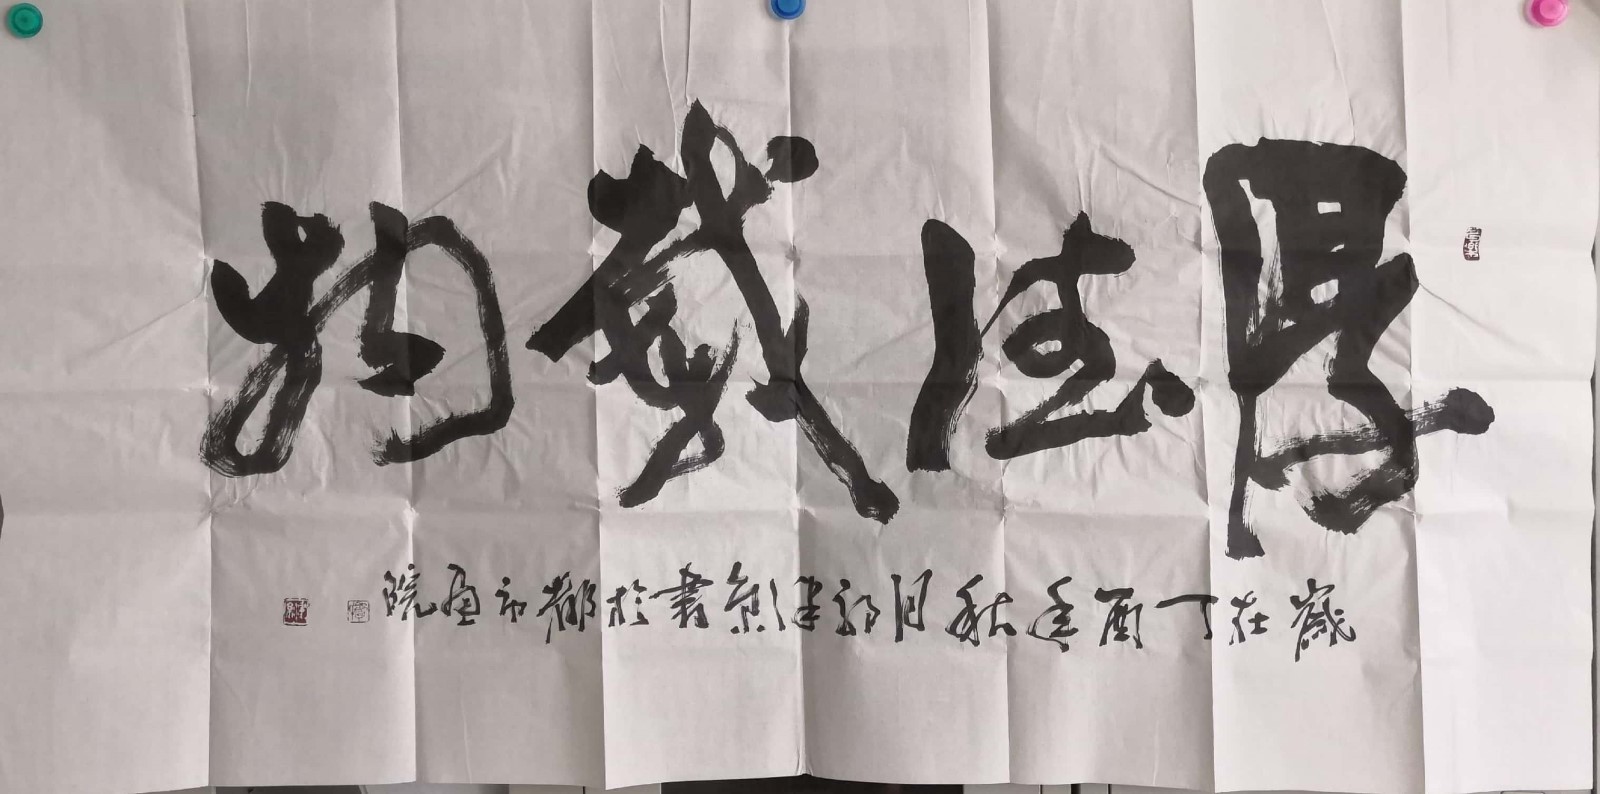 厚德載物
歲在丁酉年秋月郭津泉書於都市画院